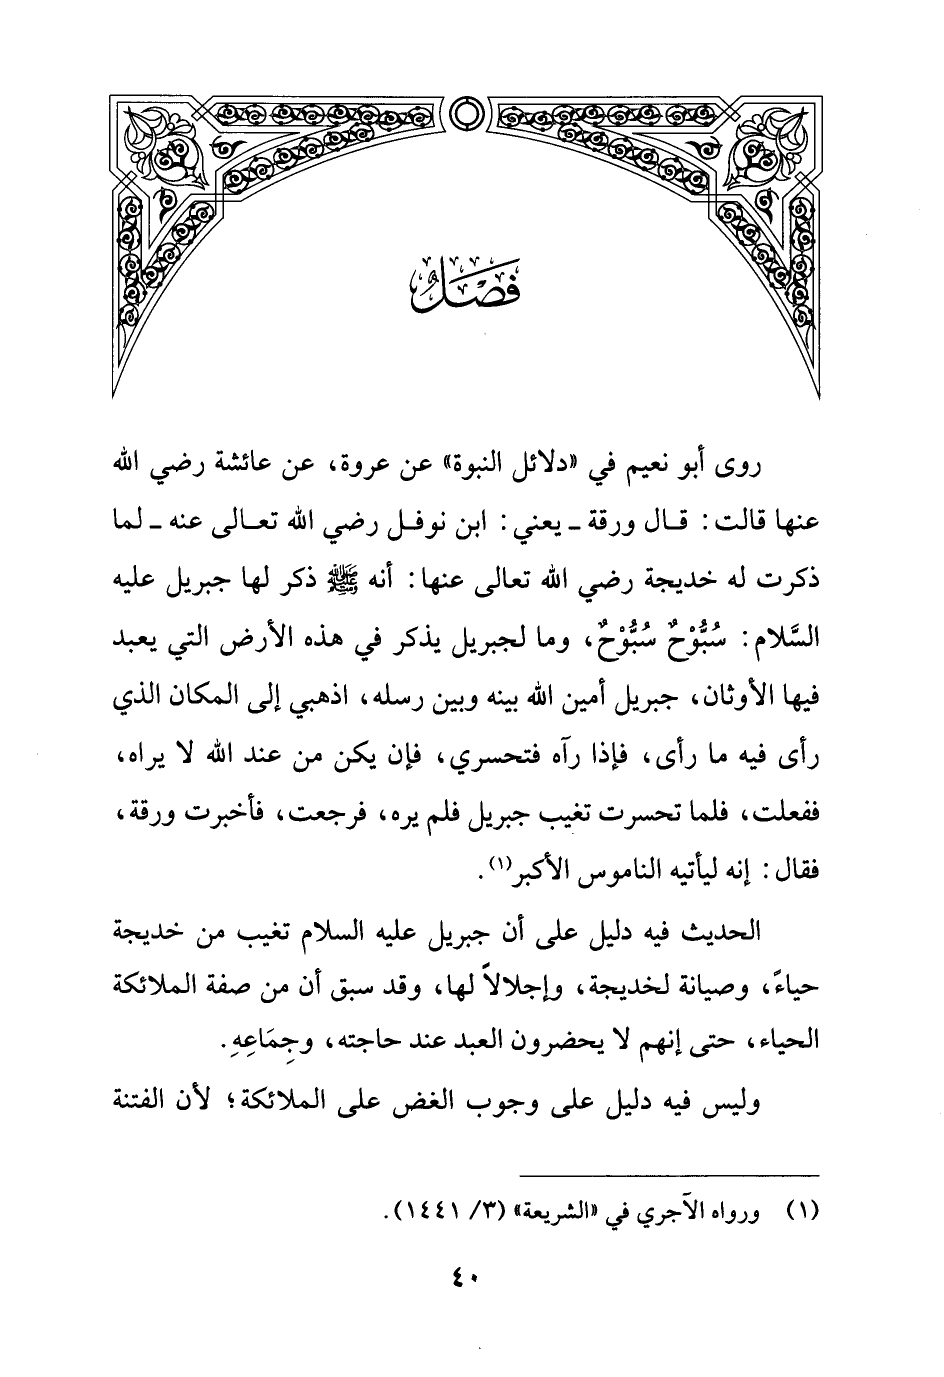 فَصْلٌ
روى أبو نعيم في «دلائل النبوة» عن عروة، عن عائشة رضي الله
عنها قالت: قال ورقة ـ يعني: ابن نوفل رضي الله تعالى عنه ـ لما
ذكرت له خديجة رضي الله تعالى عنها: أنه ﷺ ذكر لها جبريل عليه
السَّلام: سُبُّوْحٌ سُبُّوْحٌ، وما لجبريل يذكر في هذه الأرض التي يعبد
فيها الأوثان، جبريل أمين الله بينه وبين رسله، اذهبي إلى المكان الذي
رأى فيه ما رأى، فإذا رآه فتحسري، فإن يكن من عند الله لا يراه،
ففعلت، فلما تحسرت تغيب جبريل فلم يره، فرجعت، فأخبرت ورقة،
فقال: إنه ليأتيه الناموس الأكبر(١).
الحديث فيه دليل على أن جبريل عليه السلام تغيب من خديجة
حياءً، وصيانة لخديجة، وإجلالاً لها، وقد سبق أن من صفة الملائكة
الحياء، حتى إنهم لا يحضرون العبد عند حاجته، وجِمَاعِهِ.
وليس فيه دليل على وجوب الغض على الملائكة؛ لأن الفتنة
(١) ورواه الآجري في «الشريعة» (٣/ ١٤٤١).
٤٠